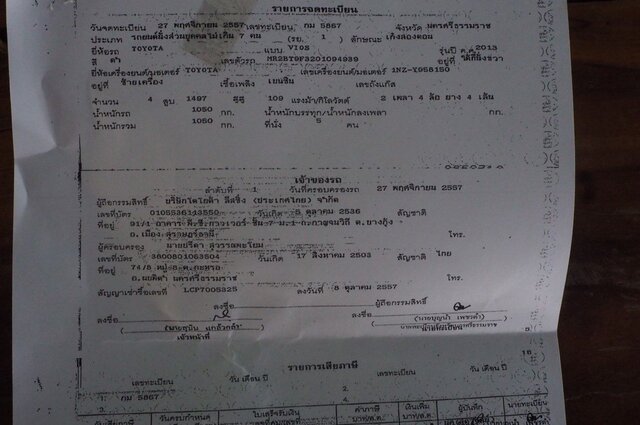 รายการจดทะเบียน
วันจดทะเบียน 27 พฤศจิกายน 2557 เลขทะเบียน กม 5867 จังหวัด นครศรีธรรมราช
ประเภท รถยนต์นั่งส่วนบุคคลไม่เกิน 7 คน (รย. 1) ลักษณะ เก๋งสองตอน
ยี่ห้อรถ TOYOTA แบบ VIOS รุ่นปี ค.ศ. 2013
สี ดำ เลขตัวรถ MR2BT9F3201094939 อยู่ที่
ยี่ห้อเครื่องยนต์/มอเตอร์ TOYOTA เลขเครื่องยนต์/มอเตอร์ 1NZ-Y958150
อยู่ที่ ซ้ายเครื่อง เชื้อเพลิง เบนซิน เลขถังแก๊ส
จำนวน 4 สูบ 1497 ซีซี 109 แรงม้า/กิโลวัตต์ 2 เพลา 4 ล้อ ยาง 4 เส้น
น้ำหนักรถ 1050 กก. น้ำหนักบรรทุก/น้ำหนักลงเพลา กก.
น้ำหนักรวม 1050 กก. ที่นั่ง 5 คน
เจ้าของรถ
ลำดับที่ 1 วันที่ครอบครองรถ 27 พฤศจิกายน 2557
ผู้ถือกรรมสิทธิ์ บริษัทโตโยต้า ลีสซิ่ง (ประเทศไทย) จำกัด
เลขที่บัตร 0105536113550 วันเกิด 5 ตุลาคม 2536 สัญชาติ
ที่อยู่ 91/1 อาคาร พี.ซี.ทาวเวอร์ ชั้น 7 ม.1 ถ.กาญจนวิถี ต.บางกุ้ง
อ.เมือง สุราษฎร์ธานี โทร.
ผู้ครอบครอง นายปรีดา
เลขที่บัตร 3800801063504 วันเกิด 17 สิงหาคม 2503 สัญชาติ ไทย
ที่อยู่ 74/8 หมู่ 8 ต.กะหรอ
อ.นบพิตำ นครศรีธรรมราช โทร.
สัญญาเช่าซื้อเลขที่ LCP7005325 ลงวันที่ 8 ตุลาคม 2557
ลงชื่อ ผู้ถือกรรมสิทธิ์
ลงชื่อ
เจ้าหน้าที่ นายทะเบียน
18
รายการเสียภาษี
เลขทะเบียน วัน เดือน ปี เลขทะเบียน วัน เดือน ปี
1. กม 5867 2.
3. 4.
วันครบกำหนด ใบเสร็จรับเงิน ค่าภาษี เงินเพิ่ม ผู้บันทึก นายทะเบียน
บาท/ส.ต. บาท/ส.ต.